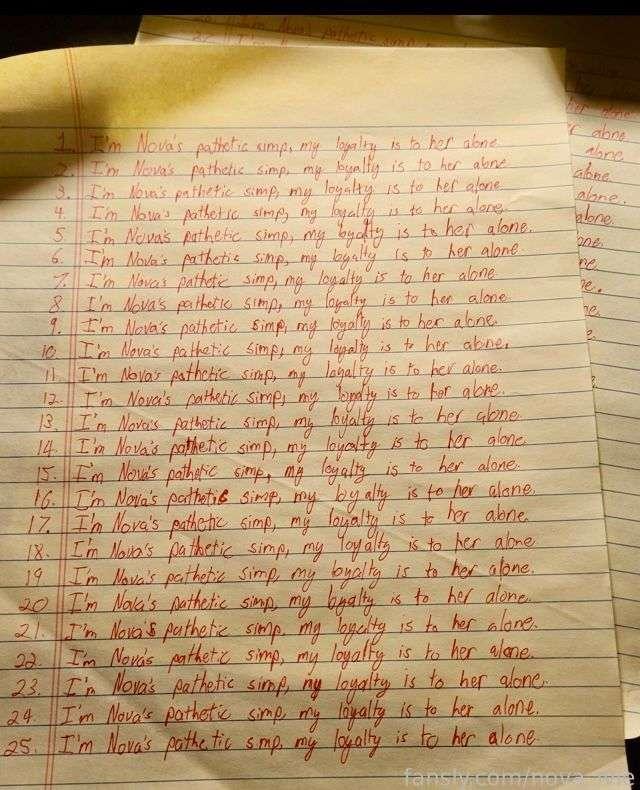 pathetic simp,
1. I'm Nova's pathetic simp, my loyalty is to her alone
2. I'm Nova's pathetic simp, my loyalty is to her alone
3. I'm Nova's pathetic simp, my loyalty is to her alone
4. I'm Nova's pathetic simp, my loyalty is to her alone.
5. I'm Nova's pathetic simp, my loyalty is to her alone.
6. I'm Nova's pathetic simp, my loyalty is to her alone
7. I'm Nova's pathetic simp, my loyalty is to her alone
8. I'm Nova's pathetic simp, my loyalty is to her alone.
9. I'm Nova's pathetic simp, my loyalty is to her alone.
10. I'm Nova's pathetic simp, my loyalty is to her alone.
11. I'm Nova's pathetic simp, my loyalty is to her alone.
12. I'm Nova's pathetic simp, my loyalty is to her alone.
13. I'm Nova's pathetic simp, my loyalty is to her alone.
14. I'm Nova's pathetic simp, my loyalty is to her alone
15. I'm Nova's pathetic simp, my loyalty is to her alone.
16. I'm Nova's pathetic simp, my loyalty is to her alone.
17. I'm Nova's pathetic simp, my loyalty is to her alone.
18. I'm Nova's pathetic simp, my loyalty is to her alone
19. I'm Nova's pathetic simp, my loyalty is to her alone.
20. I'm Nova's pathetic simp, my loyalty is to her alone.
21. I'm Nova's pathetic simp, my loyalty is to her alone.
22. I'm Nova's pathetic simp, my loyalty is to her alone.
23. I'm Nova's pathetic simp, my loyalty is to her alone.
24. I'm Nova's pathetic simp, my loyalty is to her alone.
25. I'm Nova's pathetic smp, my loyalty is to her alone.
her alone
alone
alone
alone
alone.
alone.